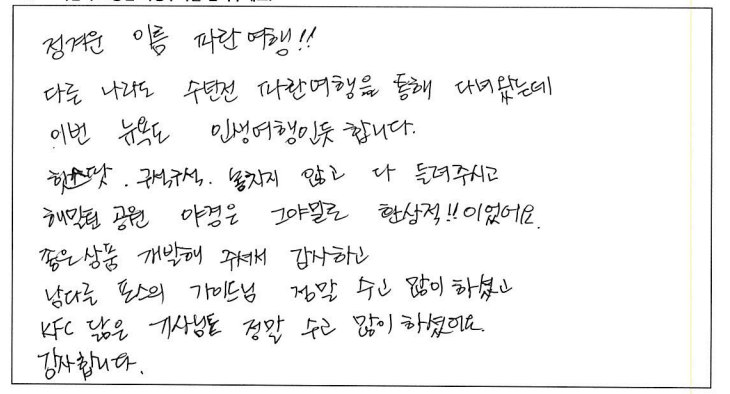 정겨운 이름 파란여행!!
다른 나라도 수년전 파란여행을 통해 다녀왔는데
이번 뉴욕도 인생여행인듯 합니다.
핫스팟. 구석구석. 놓치지 않고 다 들려주시고
해밀턴 공원 야경은 그야말로 환상적!!이었어요.
좋은상품 개발해 주셔서 감사하고
남다른 포스의 가이드님 정말 수고 많이 하셨고
KFC 닮은 기사님도 정말 수고 많이 하셨어요.
감사합니다.